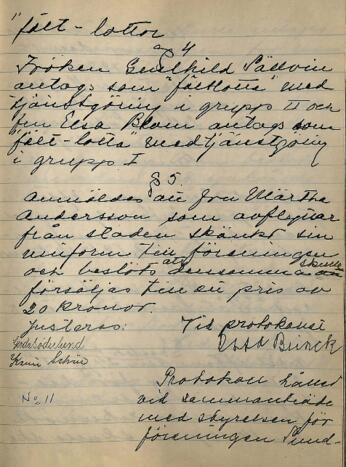 "fält-lottor
§ 4
Fröken Gunhild Sällvin
antogs som "fältlotta" med
tjänstgöring i grupp II och
fru Elsa Blom antogs som
"fält-lotta" med tjänstgöring
i grupp I
§ 5.
Anmäldes att fru Märtha
Andersson som avflyttar
från staden skänkt sin
uniform till föreningen
och beslöts att densamma skulle
försäljas till ett pris av
20 kronor.
Justeras: Vid protokollet
Gerda Söderlund Ebba Brunck
Karin
No 11
Protokoll hållet
vid sammanträde
med styrelsen för
föreningen Sund-